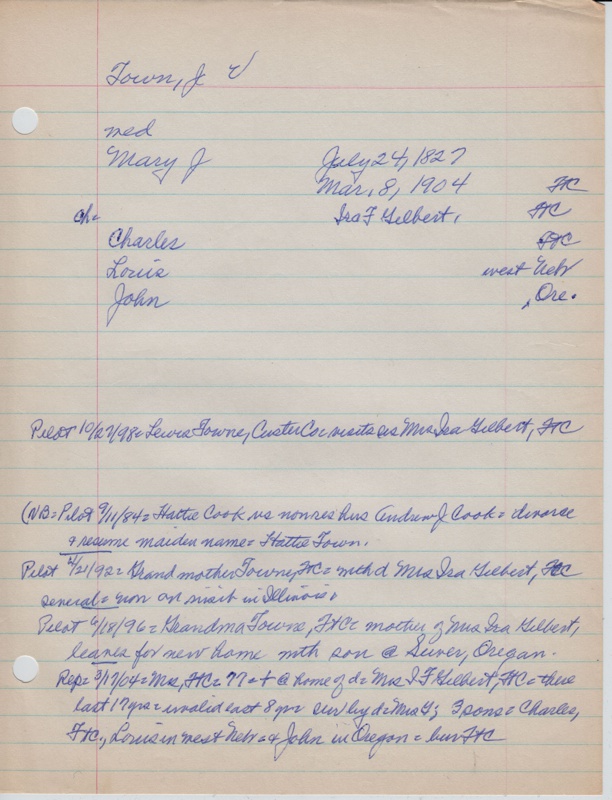 Town, J V
med
Mary J July 24, 1827
Mar. 8, 1904 FtC
ch= Ira F Gilbert, FtC
Charles FtC
Louis west Nebr
John , Ore.
Pilot 10/27/98= Lewis Towne, Custer Co= visits sis Mrs Ira Gilbert, FtC
(NB= Pilot 9/11/84= Hattie Cook vs nonres hus Andrew J Cook= divorce
& resume maiden name= Hattie Town.
Pilot 4/21/92= Grandmother Towne, FtC= mth d Mrs Ira Gilbert, FtC
several= now on visit in Illinois.
Pilot 6/18/96= Grandma Towne, FtC= mother of Mrs Ira Gilbert,
leaves for new home with son @ Suver, Oregon.
Rep= 3/17/04= Mrs, FtC= 77= + @ home of d= Mrs I F Gilbert, FtC= there
last 17 yrs= invalid last 8 yr= surv by d= Mrs G; 3 sons= Charles,
FtC., Louis in west Nebr= & John in Oregon= bur FtC